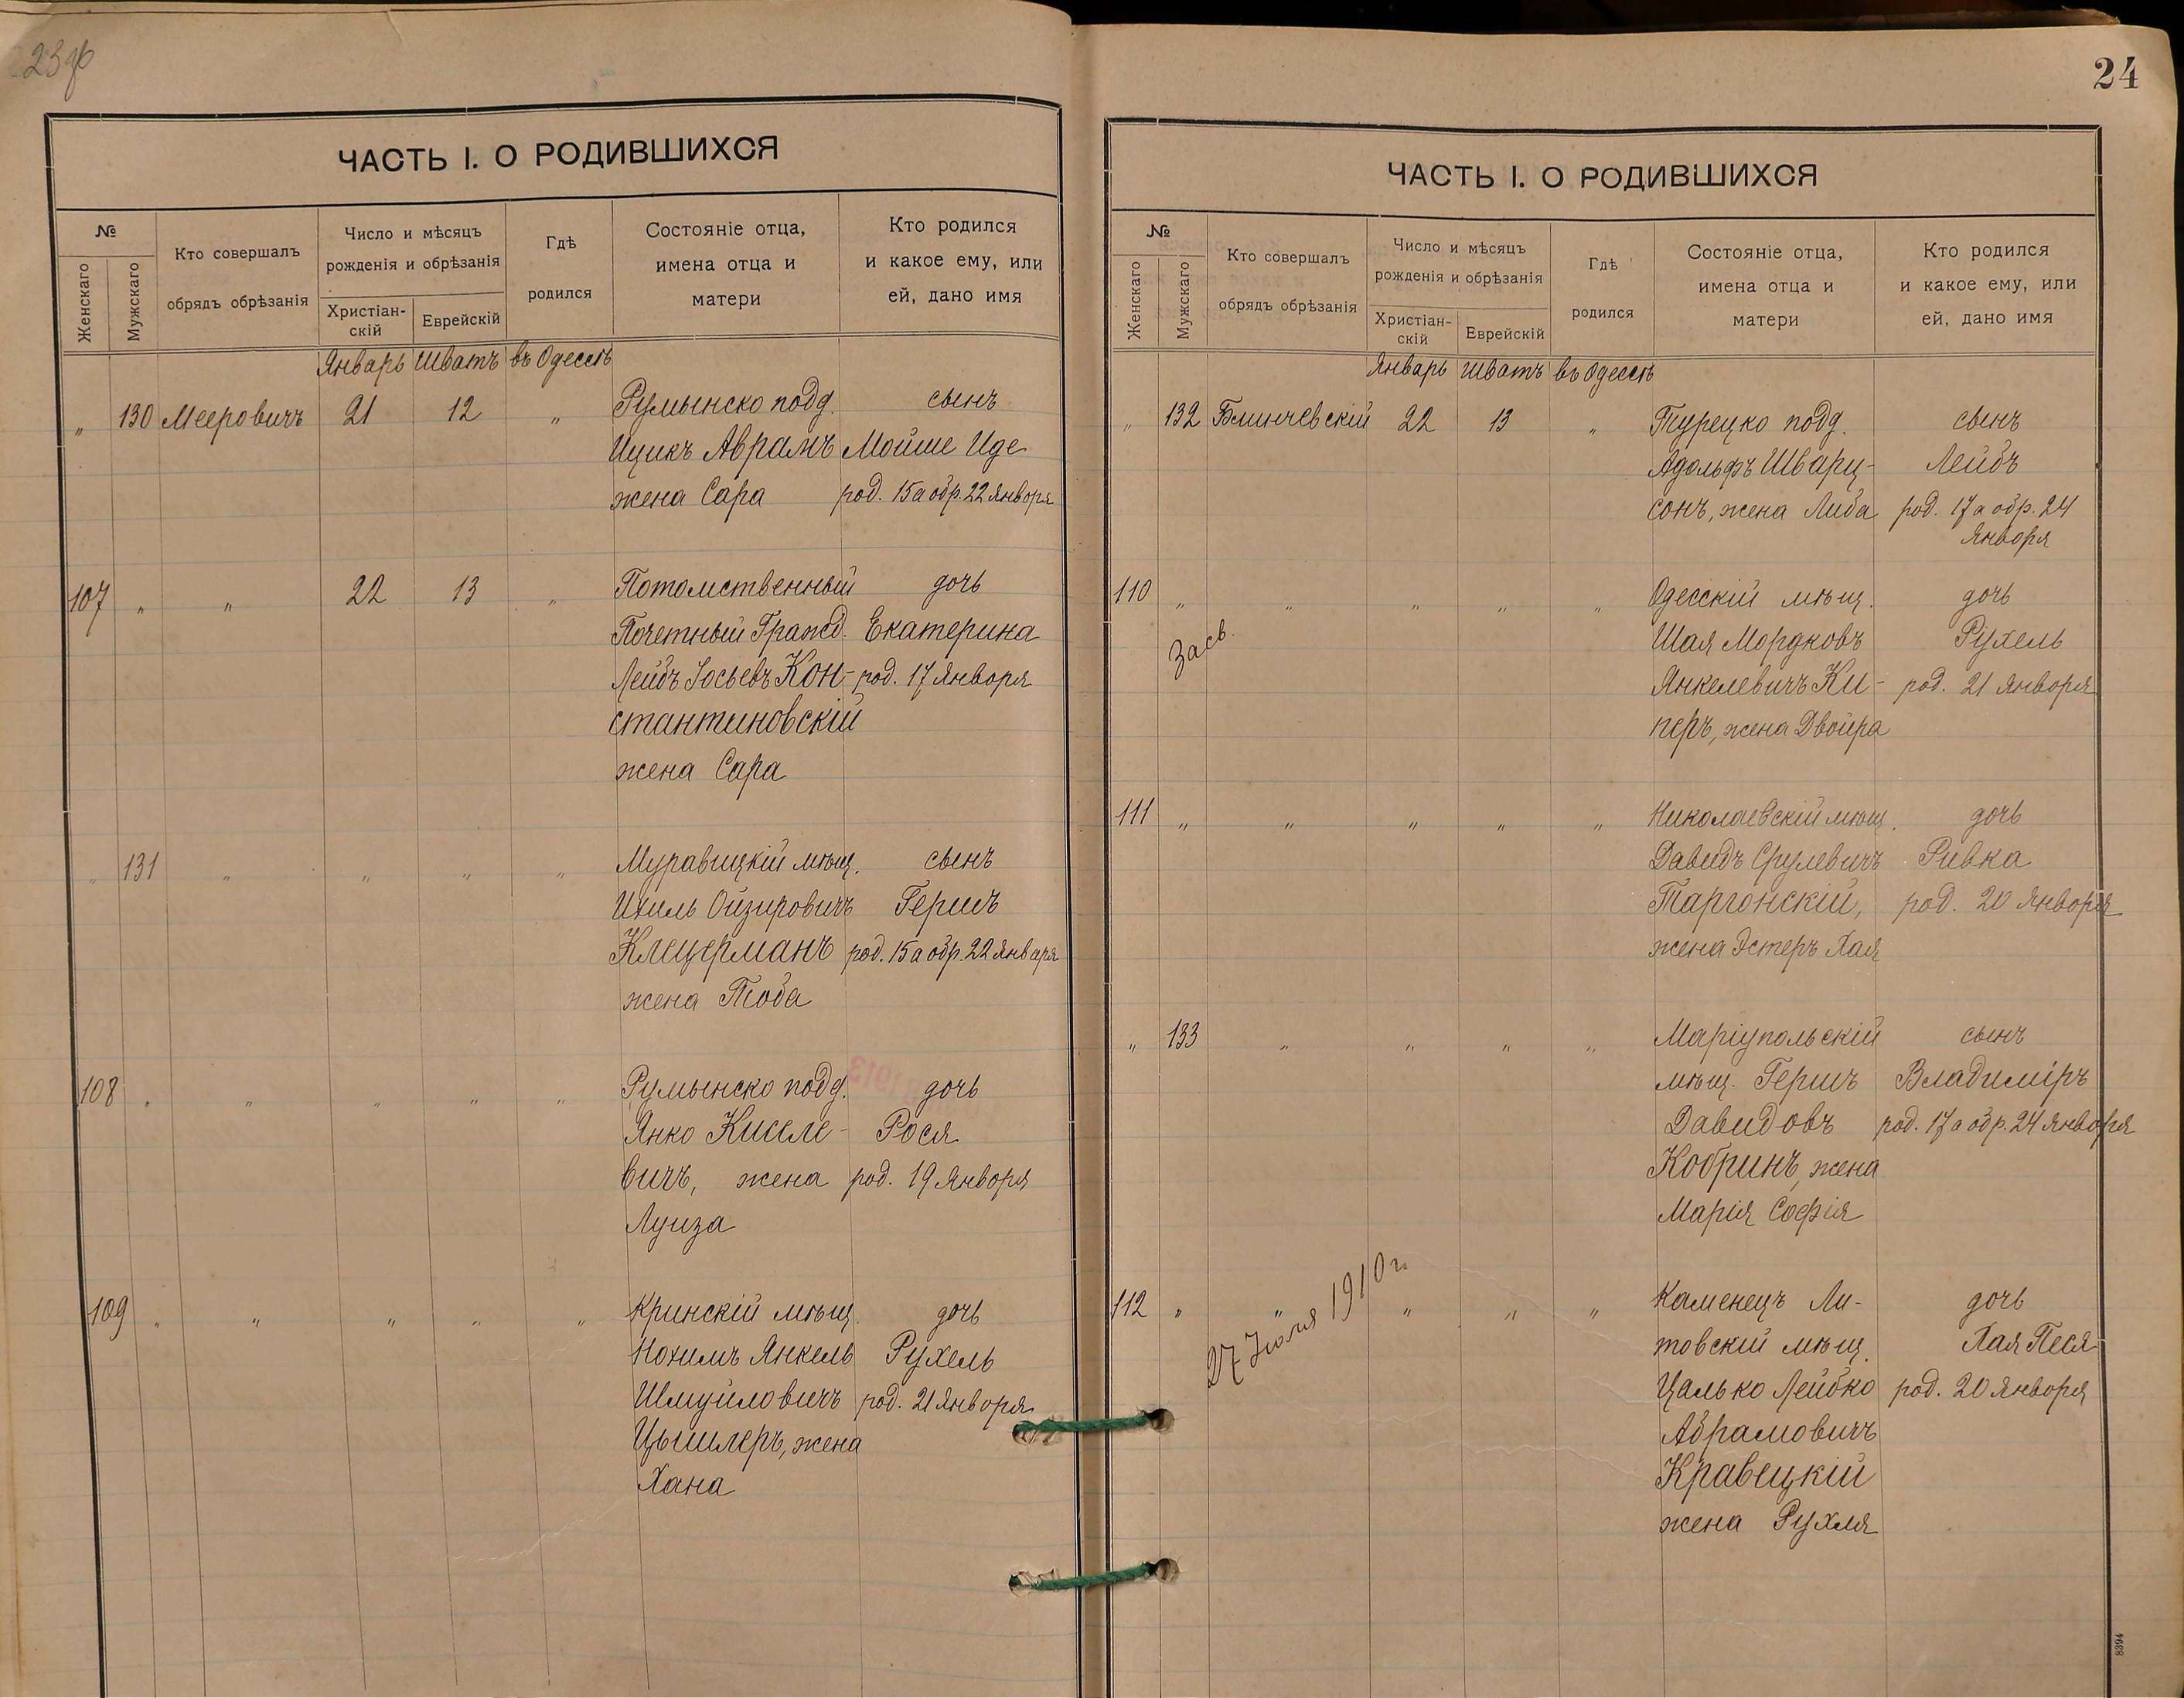 23об
ЧАСТЬ I. О РОДИВШИХСЯ
№
Женскаго
Мужскаго
Кто совершалъ
обрядъ обрѣзанія
Число и мѣсяцъ
рожденія и обрѣзанія
Христіан-
скій
Еврейскій
Гдѣ
родился
Состояніе отца,
имена отца и
матери
Кто родился
и какое ему, или
ей, дано имя
Январь Шватъ въ Одессѣ
„ 130 Мееровичъ 21 12 „ Румынско подд. сынъ
Ицикъ Аврамъ Мойше Иде
жена Сара род. 15 а обр. 22 Января
107 „ „ 22 13 „ Потомственный дочь
Почетный Гражд. Екатерина
Лейбъ Іосьевъ Кон- род. 17 Января
стантиновскій
жена Сара
„ 131 „ „ „ „ Муравицкій мѣщ. сынъ
Ихиль Ойзировичъ Гершъ
Клецерманъ род. 15 а обр. 22 Января
жена Тоба
108 „ „ „ „ „ Румынско подд. дочь
Янко Киселе- Рося
вичъ, жена род. 19 Января
Луиза
109 „ „ „ „ „ Кринскій мѣщ. дочь
Нохимъ Янкель Рухель
Шмуйловичъ род. 21 Января
Цышлеръ, жена
Хана
24
ЧАСТЬ I. О РОДИВШИХСЯ
№
Женскаго
Мужскаго
Кто совершалъ
обрядъ обрѣзанія
Число и мѣсяцъ
рожденія и обрѣзанія
Христіан-
скій
Еврейскій
Гдѣ
родился
Состояніе отца,
имена отца и
матери
Кто родился
и какое ему, или
ей, дано имя
Январь Шватъ въ Одессѣ
„ 132 Блинчевскій 22 13 „ Турецко подд. сынъ
Адольфъ Шварц- Лейбъ
сонъ, жена Либа род. 17 а обр. 24
Января
110 „ „ „ „ „ Одесскій мѣщ. дочь
Засв. Шая Мордковъ Рухель
Янкелевичъ Ки- род. 21 Января
перъ, жена Двойра
111 „ „ „ „ „ Николаевскій мѣщ. дочь
Давидъ Срулевичъ Ривка
Таргонскій, род. 20 Января
жена Эстеръ Хая
„ 133 „ „ „ „ Маріупольскій сынъ
мѣщ. Гершъ Владиміръ
Давидовъ род. 17 а обр. 24 Января
Кобринъ, жена
Марія Софія
112 „ „ „ „ „ Каменецъ Ли- дочь
27 Іюля 1910 г.
товскій мѣщ. Хая Песя
Цалько Лейбко род. 20 Января
Абрамовичъ
Кравецкій
жена Рухля
8394